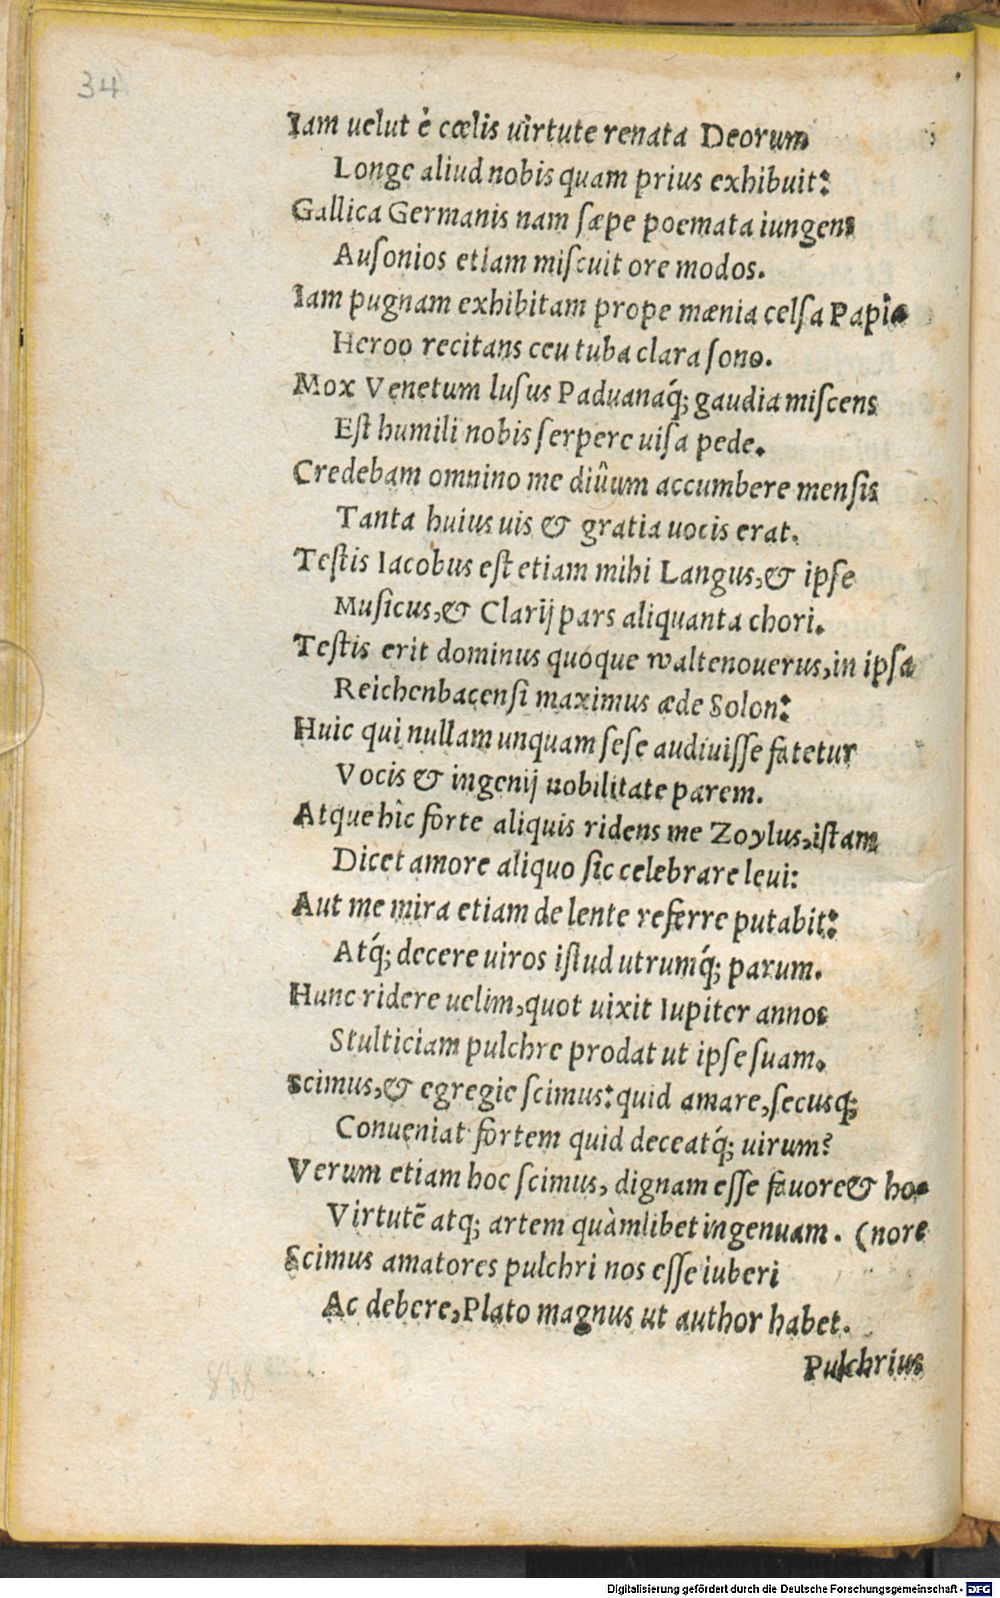 34
Iam uelut è cœlis uirtute renata Deorum
Longe aliud nobis quam prius exhibuit:
Gallica Germanis nam sæpe poemata iungens
Ausonios etiam miscuit ore modos.
Iam pugnam exhibitam prope mænia celsa Papiæ
Heroo recitans ceu tuba clara sono.
Mox Venetum lusus Paduanaq́; gaudia miscens
Est humili nobis serpere uisa pede.
Credebam omnino me diûum accumbere mensis
Tanta huius uis & gratia uocis erat.
Testis Iacobus est etiam mihi Langus, & ipse
Musicus, & Clarij pars aliquanta chori.
Testis erit dominus quóque waltenouerus, in ipsa
Reichenbacensi maximus æde Solon:
Huic qui nullam unquam sese audiuisse fatetur
Vocis & ingenij nobilitate parem.
Atque hîc forte aliquis ridens me Zoylus, istam
Dicet amore aliquo sic celebrare leui:
Aut me mira etiam de lente referre putabit:
Atq́; decere uiros istud utrumq́; parum.
Hunc ridere uelim, quot uixit Iupiter annos
Stulticiam pulchre prodat ut ipse suam.
Scimus, & egregie scimus: quid amare, secusq;
Conueniat fortem quid deceatq́; uirum?
Verum etiam hoc scimus, dignam esse fauore & ho-
Virtutẽ atq; artem quàmlibet ingenuam. (nore
Scimus amatores pulchri nos esse iuberi
Ac debere, Plato magnus ut author habet.
Pulchrius
Digitalisierung gefördert durch die Deutsche Forschungsgemeinschaft - DFG